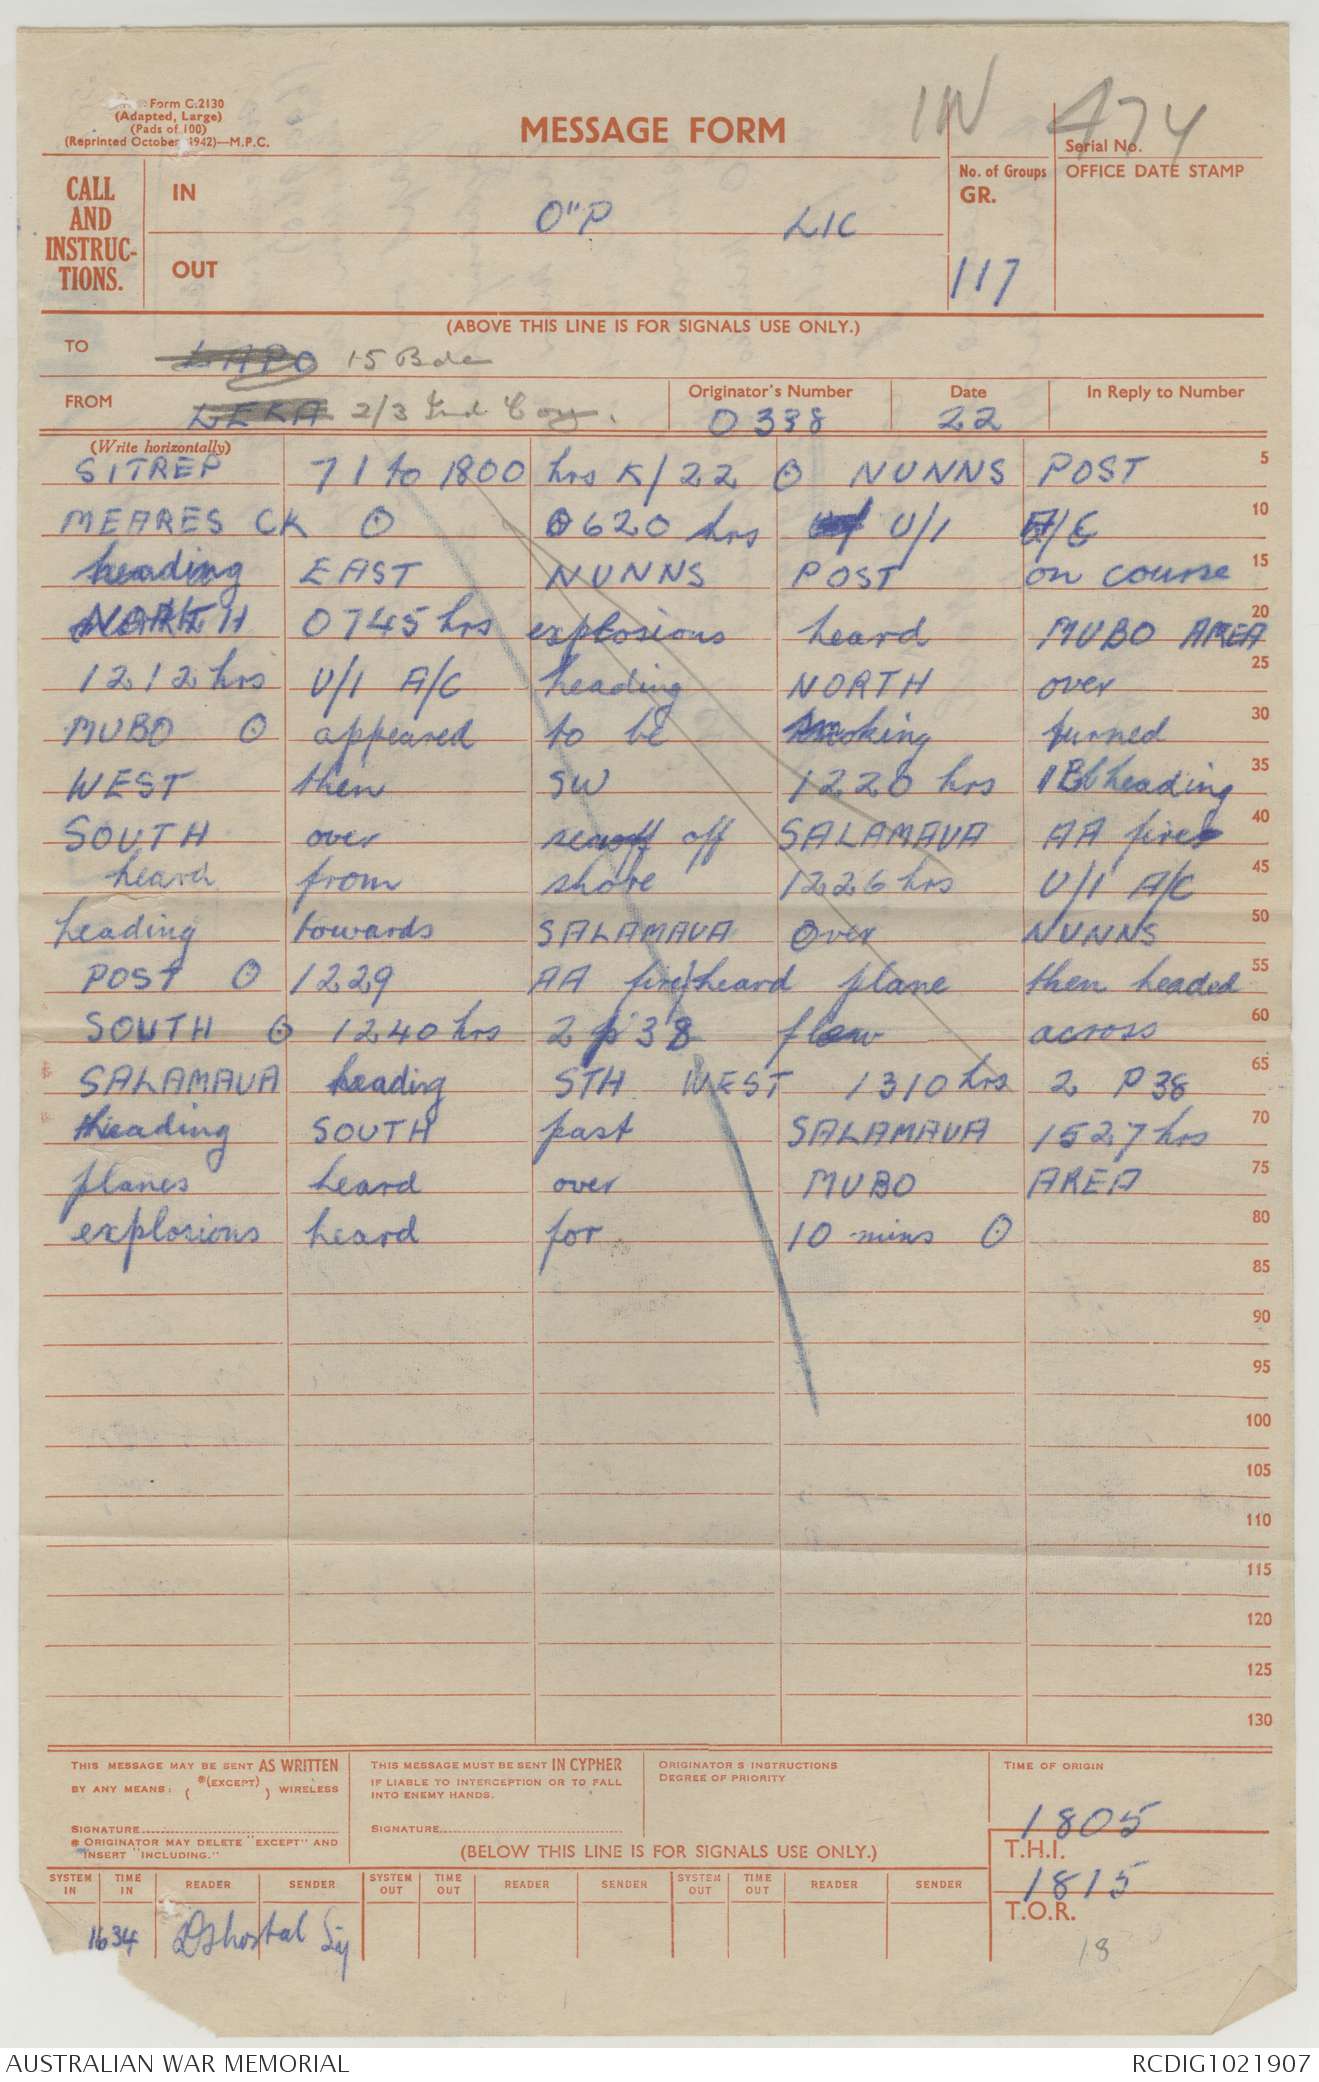 Form C.2130
(Adapted, Large)
(Pads of 100)
(Reprinted October 1942)—M.P.C.
MESSAGE FORM
IN 474
Serial No.
CALL AND INSTRUC-TIONS.
IN
OUT
O"P LIC
No. of Groups
GR.
117
OFFICE DATE STAMP
(ABOVE THIS LINE IS FOR SIGNALS USE ONLY.)
TO LAPO 15 Bde
FROM LEKA 2/3 Ind Coy.
Originator's Number
0338
Date
22
In Reply to Number
(Write horizontally)
SITREP 71 to 1800 hrs K/22 ⊙ NUNNS POST 5
MEARES CK ⊙ 0620 hrs U/I A/C 10
heading EAST NUNNS POST on course 15
NORTH 0745 hrs explosions heard MUBO AREA 20
1212 hrs U/I A/C heading NORTH over 25
MUBO ⊙ appeared to be smoking turned 30
WEST then SW 1220 hrs heading 35
SOUTH over off SALAMAUA AA fire 40
heard from shore 1226 hrs U/I A/C 45
heading towards SALAMAUA Over NUNNS 50
POST ⊙ 1229 AA fire heard plane then headed 55
SOUTH ⊙ 1240 hrs 2 p'38 flew across 60
SALAMAUA heading STH WEST 1310 hrs 2 P38 65
heading SOUTH past SALAMAUA 1527 hrs 70
planes heard over MUBO AREA 75
explosions heard for 10 mins ⊙ 80
85
90
95
100
105
110
115
120
125
130
THIS MESSAGE MAY BE SENT AS WRITTEN
BY ANY MEANS: ( *(EXCEPT) ) WIRELESS
SIGNATURE
* ORIGINATOR MAY DELETE "EXCEPT" AND
INSERT "INCLUDING."
THIS MESSAGE MUST BE SENT IN CYPHER
IF LIABLE TO INTERCEPTION OR TO FALL
INTO ENEMY HANDS.
SIGNATURE
ORIGINATOR S INSTRUCTIONS
DEGREE OF PRIORITY
TIME OF ORIGIN
1805
(BELOW THIS LINE IS FOR SIGNALS USE ONLY.)
T.H.I.
1815
T.O.R.
18
SYSTEM IN TIME IN READER SENDER SYSTEM OUT TIME OUT READER SENDER SYSTEM OUT TIME OUT READER SENDER
1634 Sig
AUSTRALIAN WAR MEMORIAL RCDIG1021907